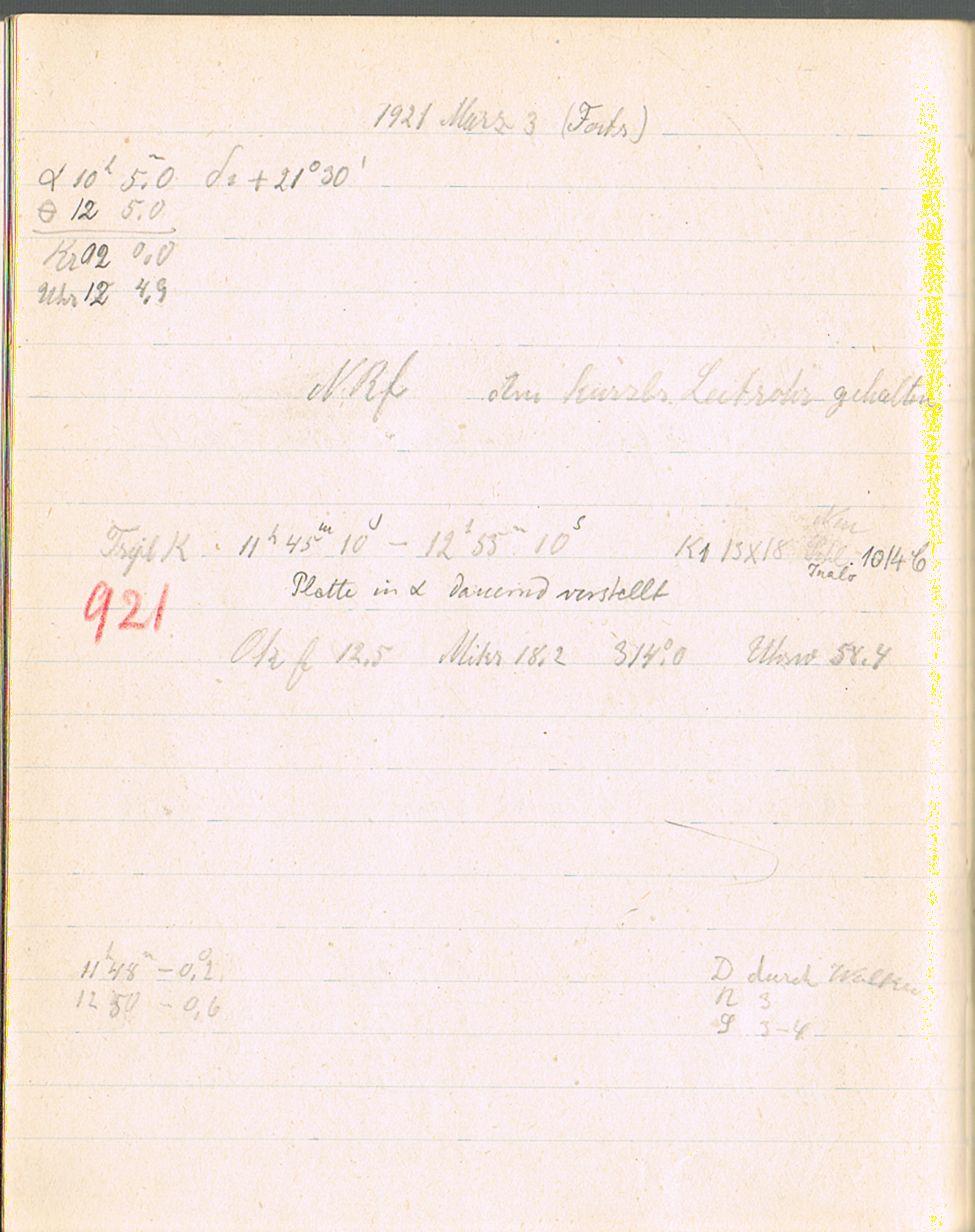 1921 März 3 (Forts)
α 10ʰ 5ᵐ.0 δ + 21° 30'
θ 12 5.0
Kr 02 0.0
Uhr 12 4.9
N.Rf Am kurzen Leitrohr gehalten
Tript K 11ʰ 45ᵐ 10ˢ – 12ʰ 55ᵐ 10ˢ K1 13X18 1014 C
Platte in α dauernd verstellt
921
Okr f 12.5 Mikr 18.2 314°.0 Uhrw 58.4
11ʰ 48ᵐ – 0,2
12 50 – 0,6
D durch Wolken
R 3
3–4